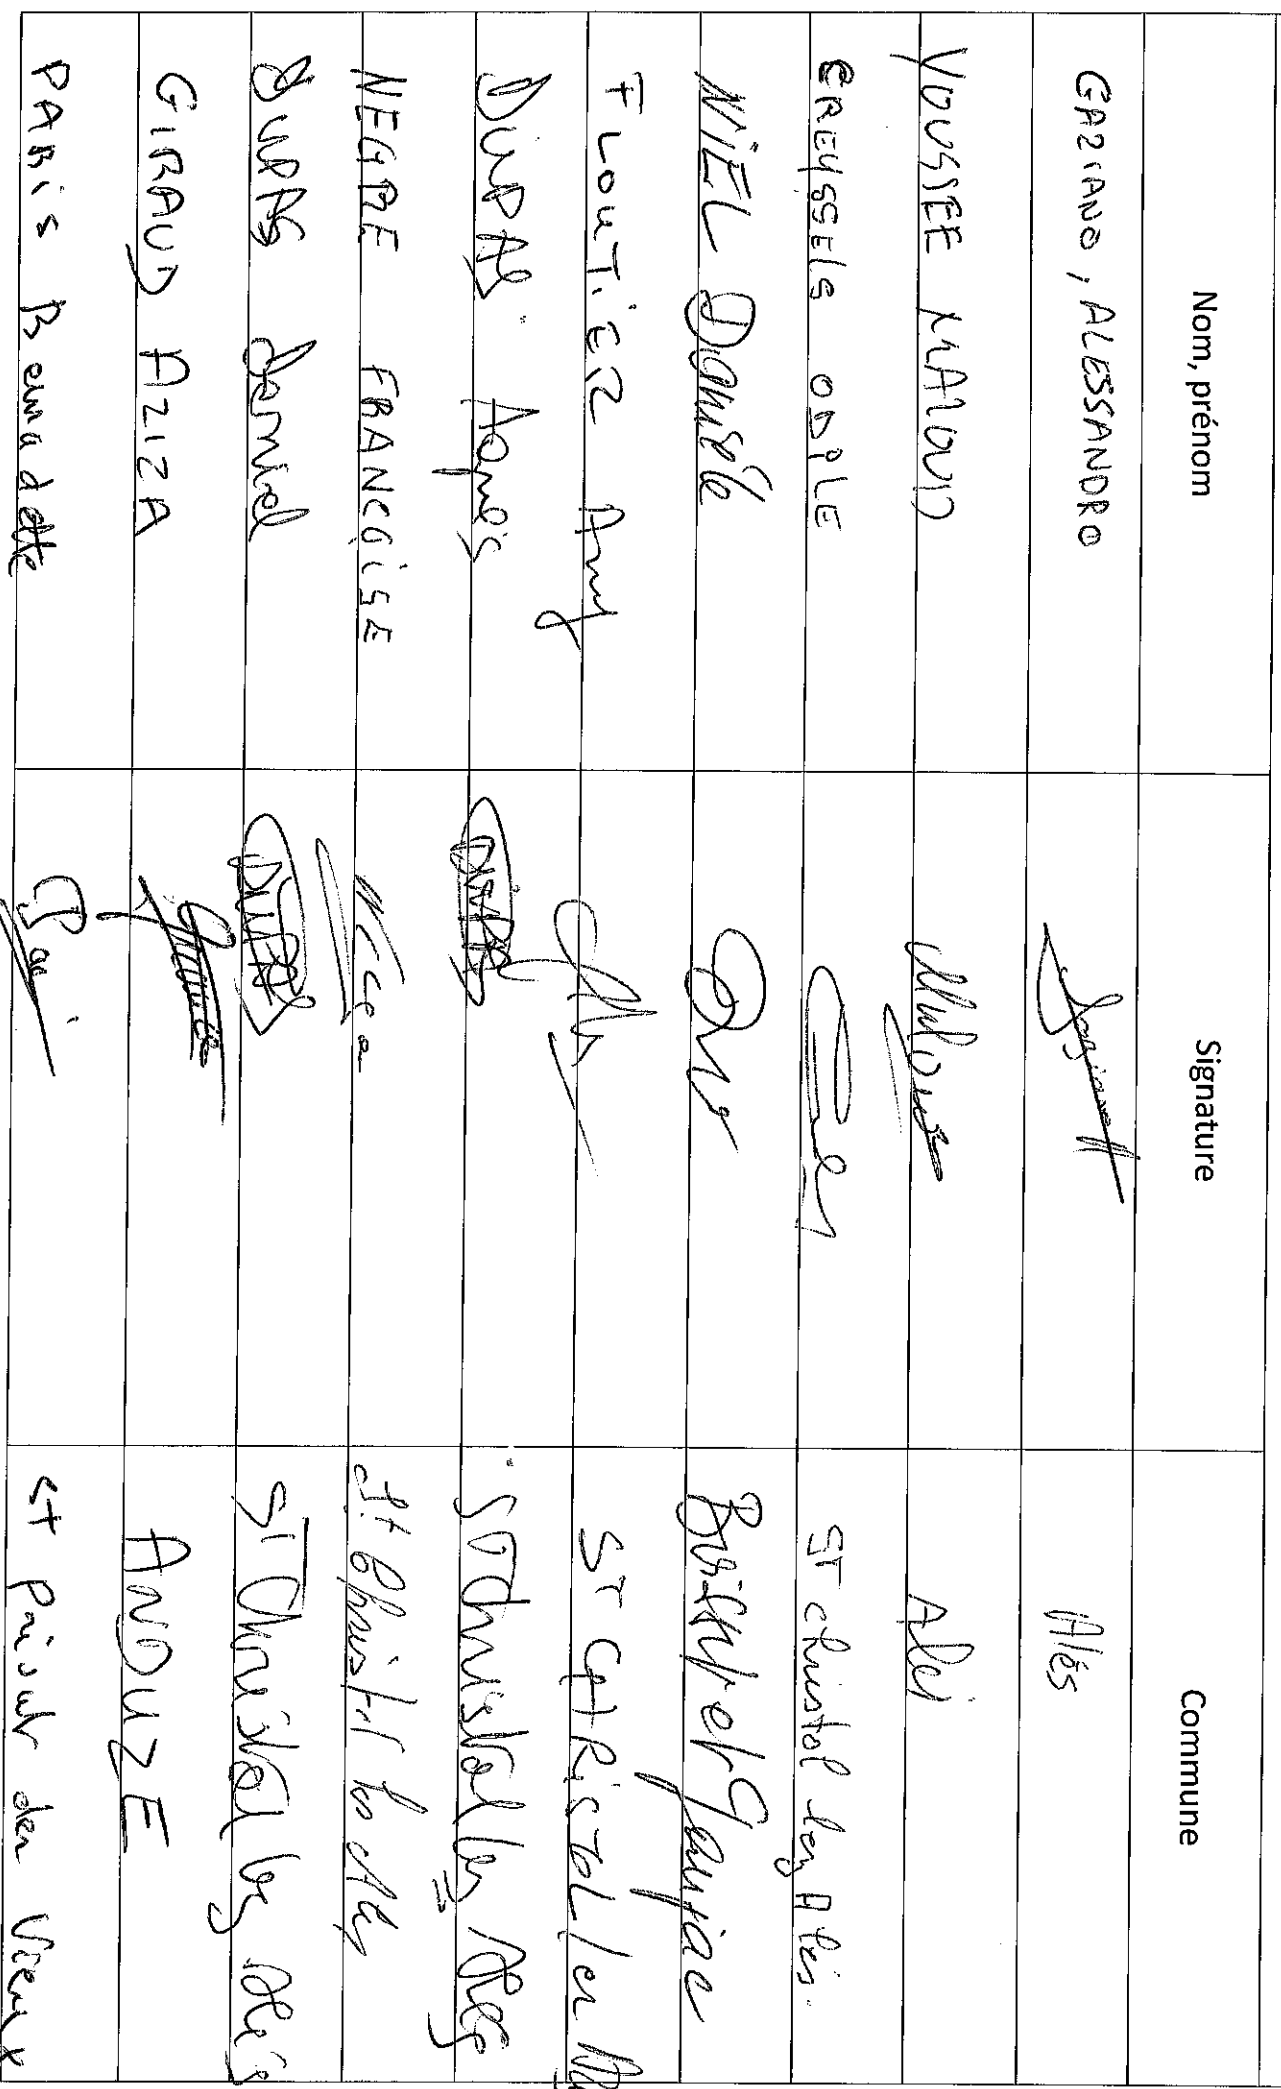 Nom, prénom Signature Commune
GAZIANO, ALESSANDRO Alès
YOUSSEE MALOUD Alès
CREYSSELS ODILE ST christol lez Alès.
NIEL Danièle Boisset et Gaujac
FLOUTIER Anny ST CHRISTOL lez
DUPAS Agnès DUPAS ST Christol lez Alès
NEGRE FRANCOISE St Christol les Alès
DUPAS Daniel DUPAS ST Christol lez Alès
GIRAUD AZIZA ANDUZE
PARIS Bernadette ST Privat des Vieux